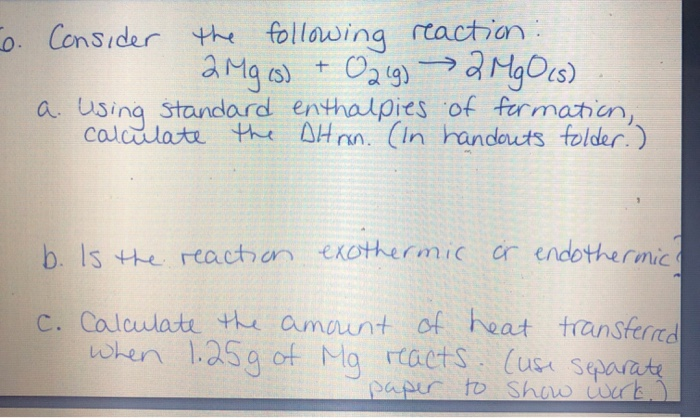 6. Consider the following reaction:
2 Mg (s) + O2 (g) → 2 MgO (s)
a. Using standard enthalpies of formation,
calculate the ΔHrxn. (In handouts folder.)
b. Is the reaction exothermic or endothermic?
c. Calculate the amount of heat transferred
when 1.25g of Mg reacts. (use separate
paper to show work.)